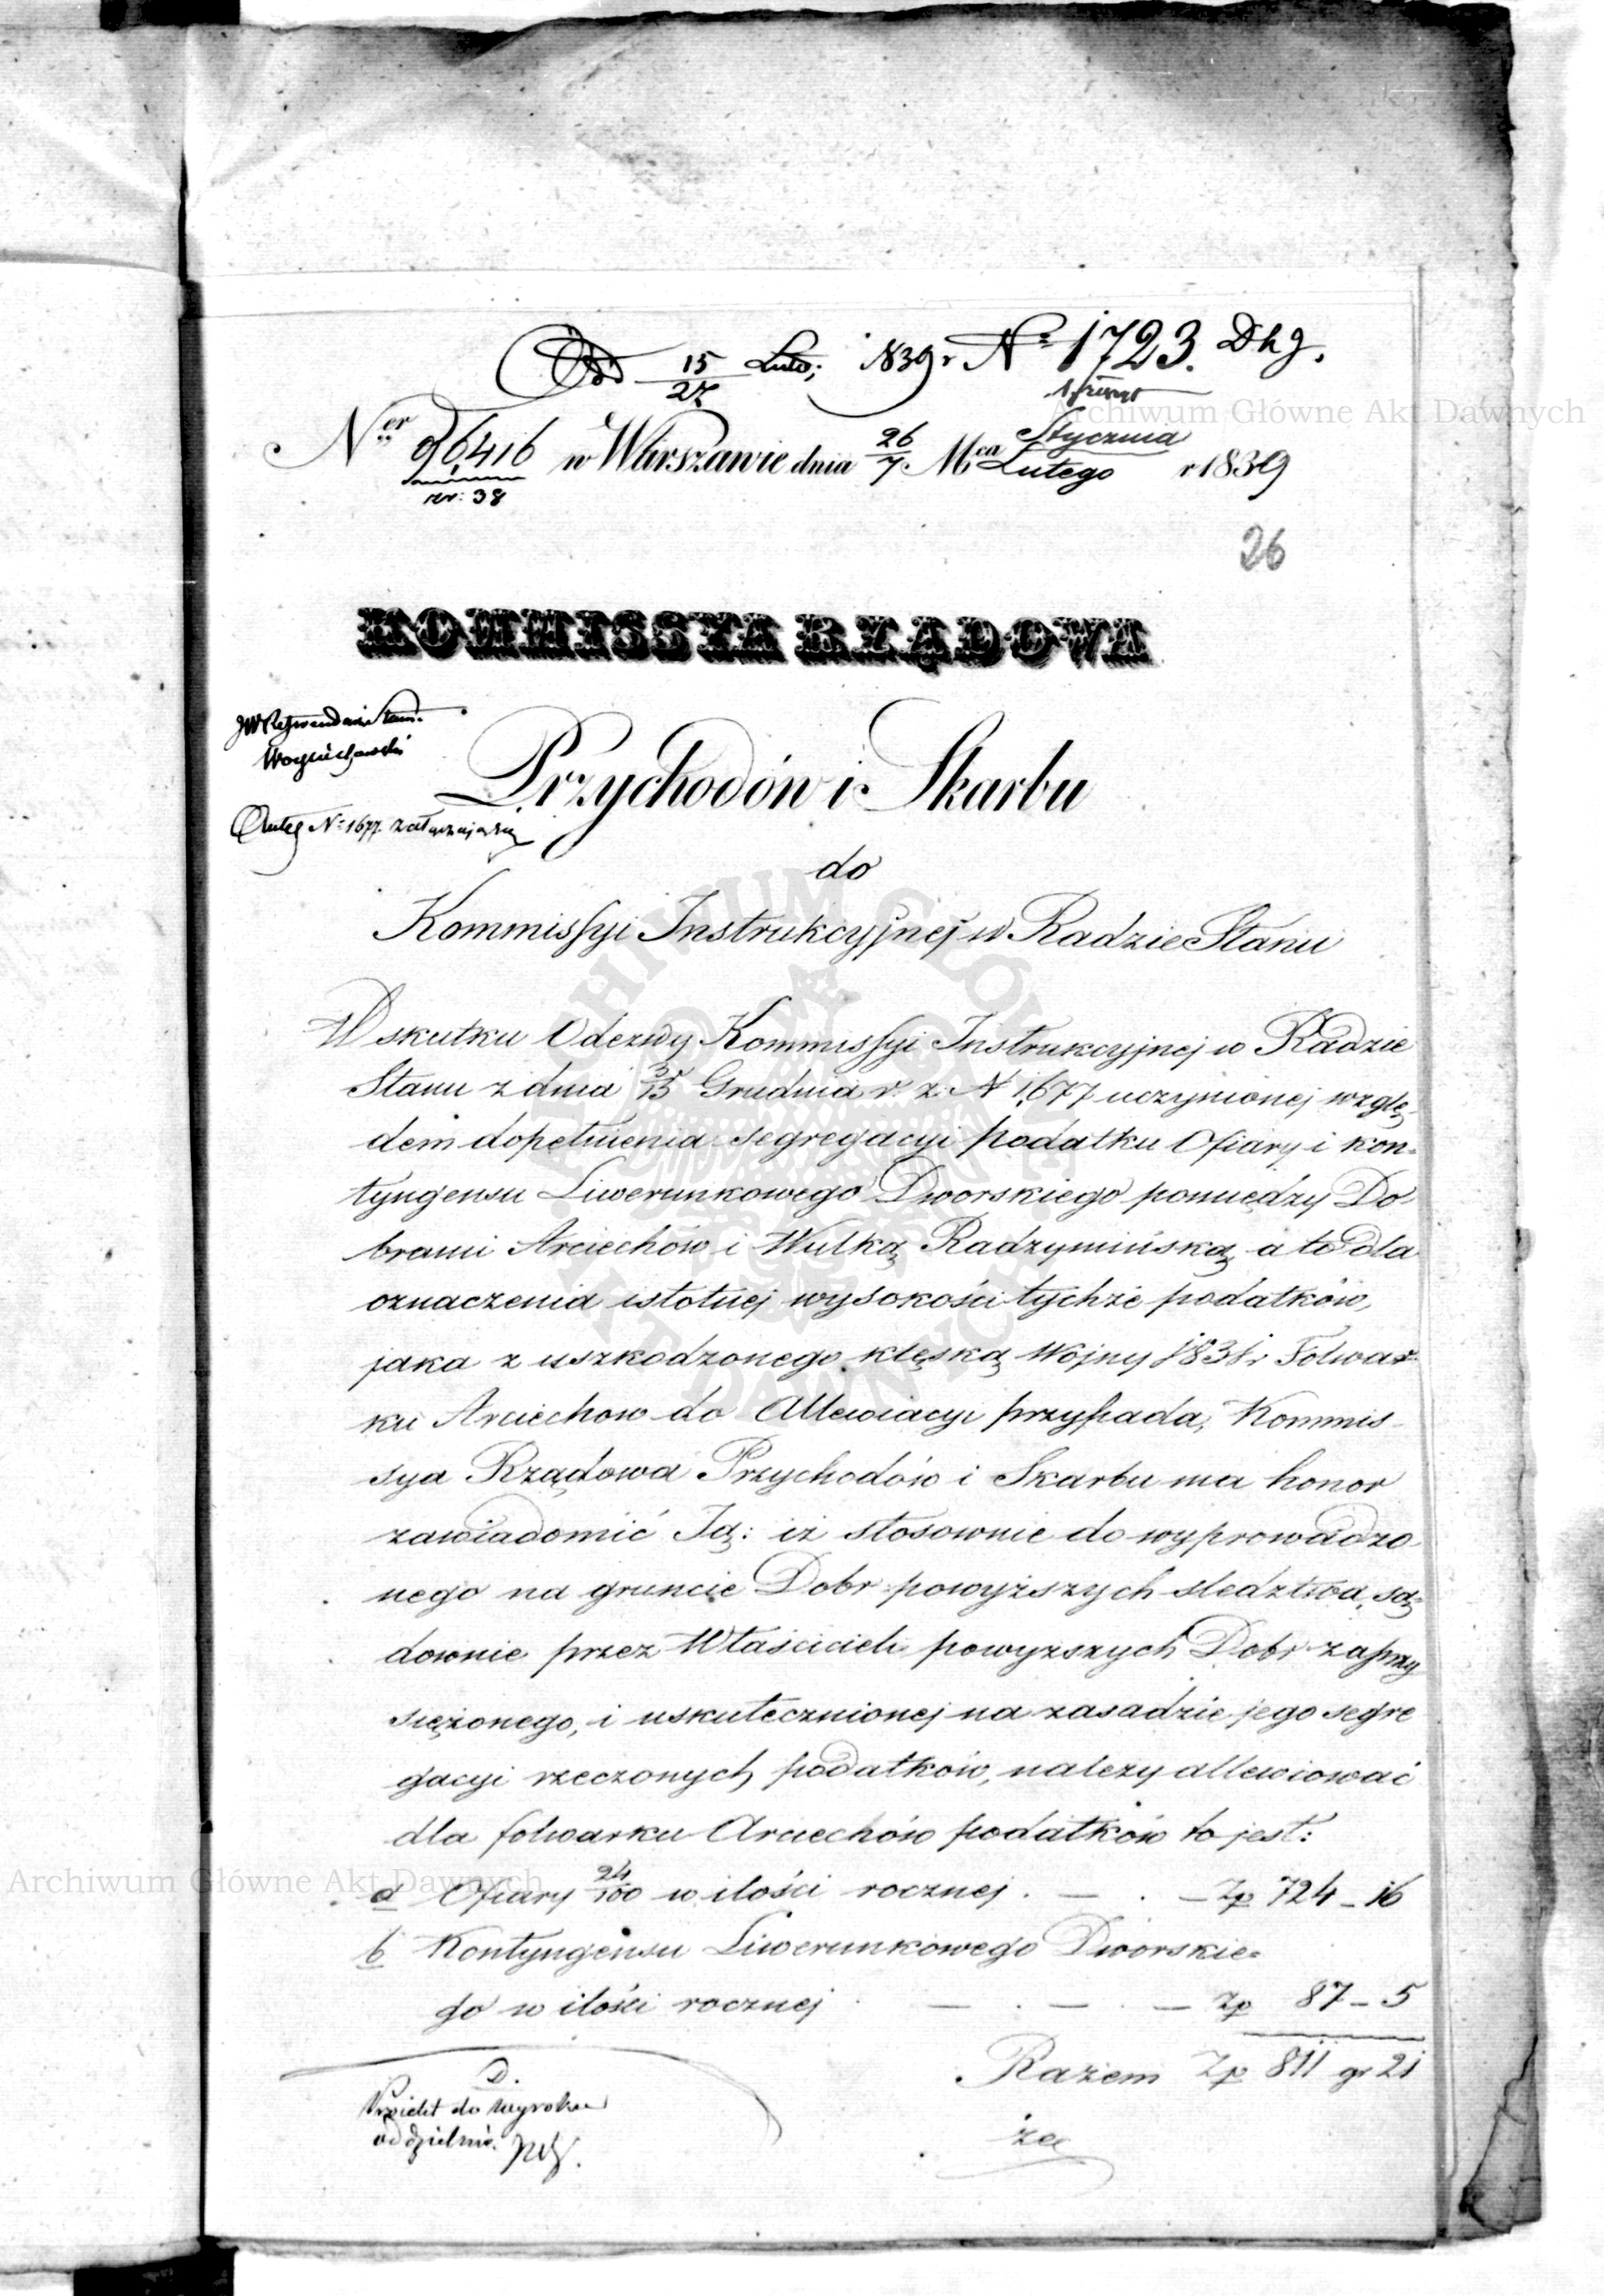 Odd 15/27 Luto; 1839 r N° 1723. Dhg.
Ner 96416 w Warszawie dnia 26/7 Mca Stycznia/Lutego r 1839
rer: 38
26
KOMMISSYA RZĄDOWA
JW Referendarz Stanu
Woyciechowski
Przychodów i Skarbu
Anteq N° 1677. załączają się
do
Kommissyi Instrukcyjnej w Radzie Stanu
W skutku Odezwy Kommissyi Instrukcyjnej w Radzie
Stanu z dnia 3/15 Grudnia r. z. N 1677 uczynionej wzglę-
dem dopełnienia segregacyi podatku Ofiary i kon-
tyngensu Liwerunkowego Dworskiego pomiędzy Do-
brami Arciechów i Wulką Radzymińską, a to dla
oznaczenia istotnej wysokości tychże podatków,
jaka z uszkodzonego klęską Wojny 1831 r Folwar-
ku Arciechow do Allewiacyi przypada, Kommis-
sya Rządowa Przychodów i Skarbu ma honor
zawiadomić Ją: iż stosownie do wyprowadzo-
nego na gruncie Dobr powyższych sledztwa, są-
downie przez Właścicieli powyzszych Dobr zaprzy
siężonego, i uskutecznionej na zasadzie jego segre
gacyi rzeczonych podatków, nalezy allewiować
dla folwarku Arciechów podatków to jest:
a Ofiary 24/100 w ilości rocznej . — . — Zp 724 – 16
b Kontyngensu Liwerunkowego Dworskie-
go w ilości rocznej . — . — . — Zp 87 – 5
Razem Zp 811 gr 21
D.
Proiekt do wyroku
oddzielnie.
że
Archiwum Główne Akt Dawnych
Archiwum Główne Akt Dawnych
ARCHIWUM GŁÓWNE AKT DAWNYCH